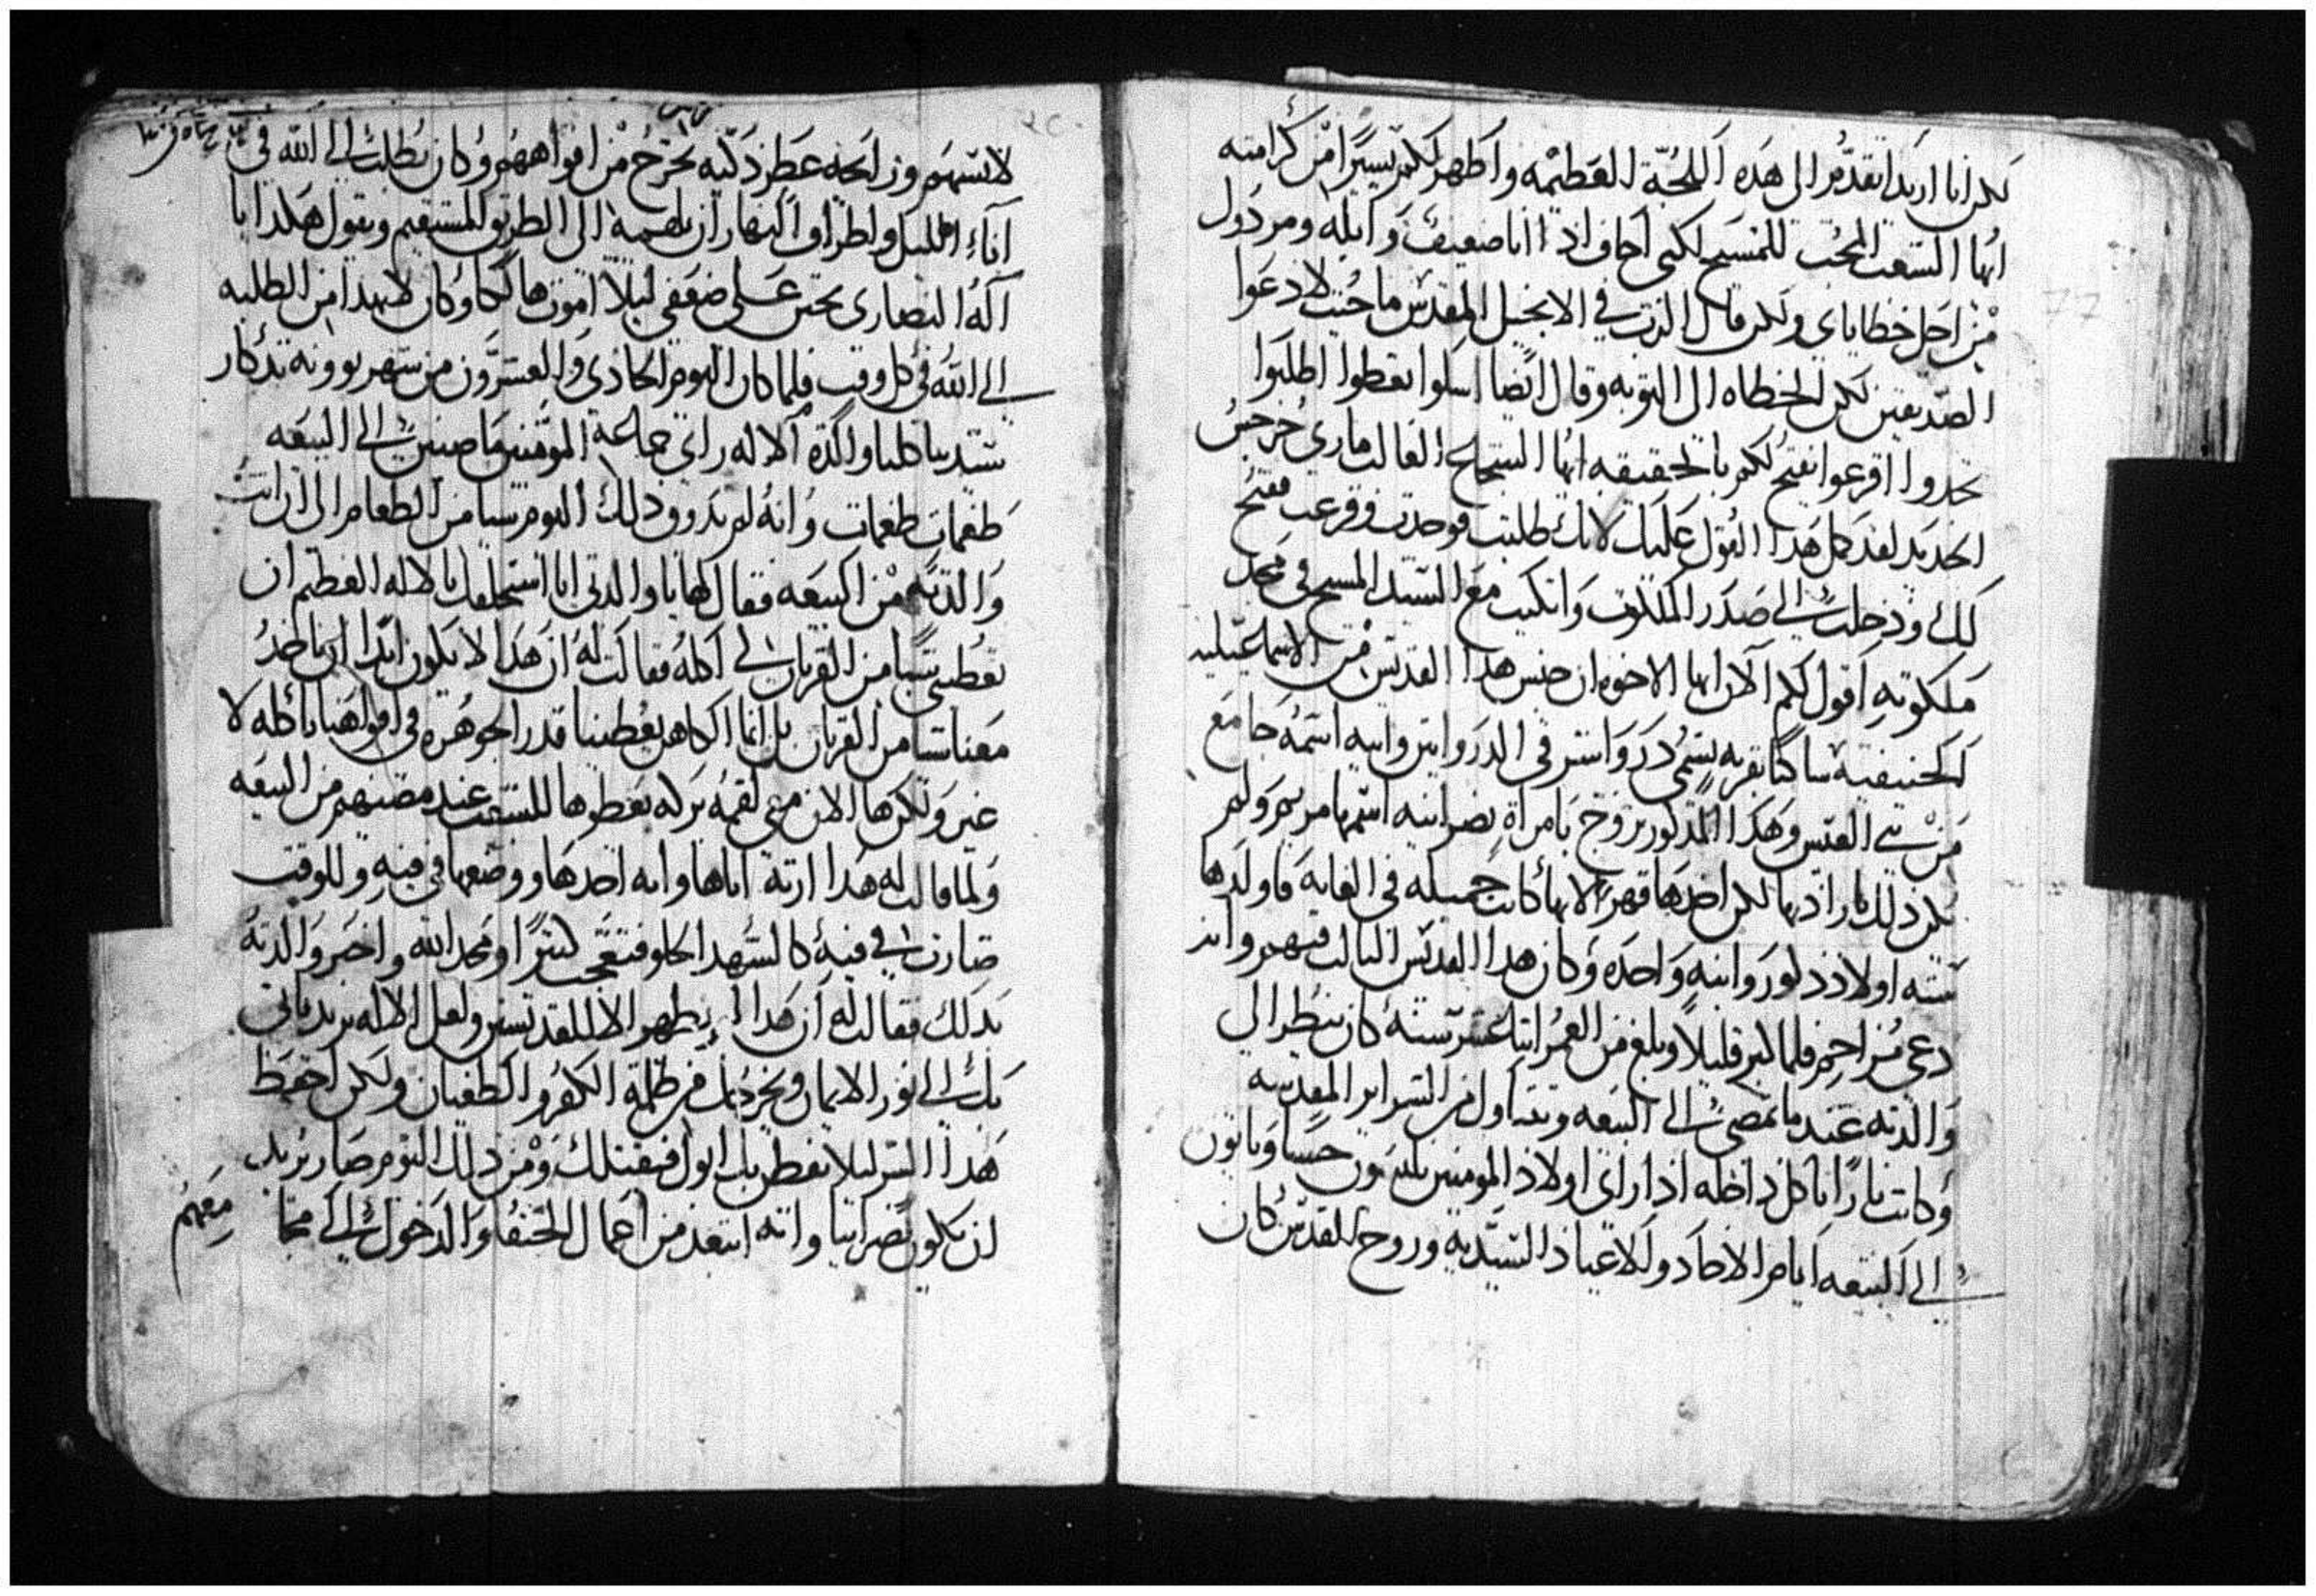 لكن انا اريد اتقدم الى هذه اللجة العظيمة واظهر لكم يسيرا من كرامته
ايها الشعب المحب للمسيح لكني اخاف اذ انا ضعيف وابله ومردول
من اجل خطاياي ولكن قال الرب في الانجيل المقدس ما جيت لادعوا
الصديقين لكن الخطاه الى التوبه وقال ايضا اسلوا تعطوا اطلبوا
تجدوا اقرعوا يفتح لكم بالحقيقه ايها الشجاع الغالب ماري جرجس
الجديد لقد كمل هذا القول عليك لانك طلبت فوجدت وقرعت ففتح
لك ودخلت الى صدر الملكوت واتكيت مع السيد المسيح في مجد
ملكوته اقول لكم الان ايها الاخوه ان جنس هذا القديس من الاسماعيليه
الحنيفيه ساكنا بقريه تسمى دروا شر في الدروايتن وابيه اسمه جامع
من بني القيس وهذا المذكور تزوج بامراة نصرانيه اسمها مريم ولم
يكن ذلك بارادتها لكن اخدها قهرا لانها كانت جميله في الغايه فاولدها
سته اولاد ذكور وابنه واحده وكان هذا القديس التالت فيهم وانه
دعي مزاحم فلما كبر قليلا وبلغ من العمر اتنا عشر سنه كان ينظر الى
والدته عندما تمضي الى البيعه وتتناول من السراير المقدسه
وكانت نارا تاكل داخله اذا راي اولاد المومنين يلبسون حسنا وياتون
الى البيعه ايام الاحاد والاعياد السيديه وروح القدس كان
لابسهم ورايحه عطر ذكيه تخرج من افواههم وكان يطلب الى الله في
اناء الليل واطراف النهار ان يلهمه الى الطريق المستقيم ويقول هكذا يا
اله النصارى تحنن على ضعفي ليلا اموت هالكا وكان لا يهدا من الطلبه
الى الله في كل وقت فلما كان اليوم الحادي والعشرون من شهر بوونه تدكار
ستنا والدة الاله راي جماعة المومنين ماضيين الى البيعه
طغمات طغمات وانه لم يدوق ذلك اليوم شيا من الطعام الى ان اتت
والدته من البيعه فقال لها يا والدتي انا استحلفك بالاله العظيم ان
تعطيني شيا من القربان لي اكله فقالت له ان هذا لا يكون ابدا ان ناخد
معنا شيا من القربان بل انما الكاهن يعطينا قدر الجوهره في افواهنا ناكله لا
غير ولكن ها الان معي لقمه بركه يعطوها للشعب عند مضيهم من البيعه
ولما قالت له هذا ارته اياها وانه اخدها ووضعها في فيه وللوقت
صارت في فيه كالشهد الحلو فتعجب كتيرا ومجد الله واخبر والدته
بدلك فقالت له ان هذا لم يظهر الا للقديسين ولعل الاله يريد ياتي
بك الى نور الايمان ويخرجك من ظلمة الكفر والطغيان ولكن احفظ
هذا السر ليلا يفطن بك ابوك فيقتلك ومن ذلك اليوم صار يريد
ان يكون نصرانيا وانه ابتعد من اعمال الحنفا والدخول الى
معهم